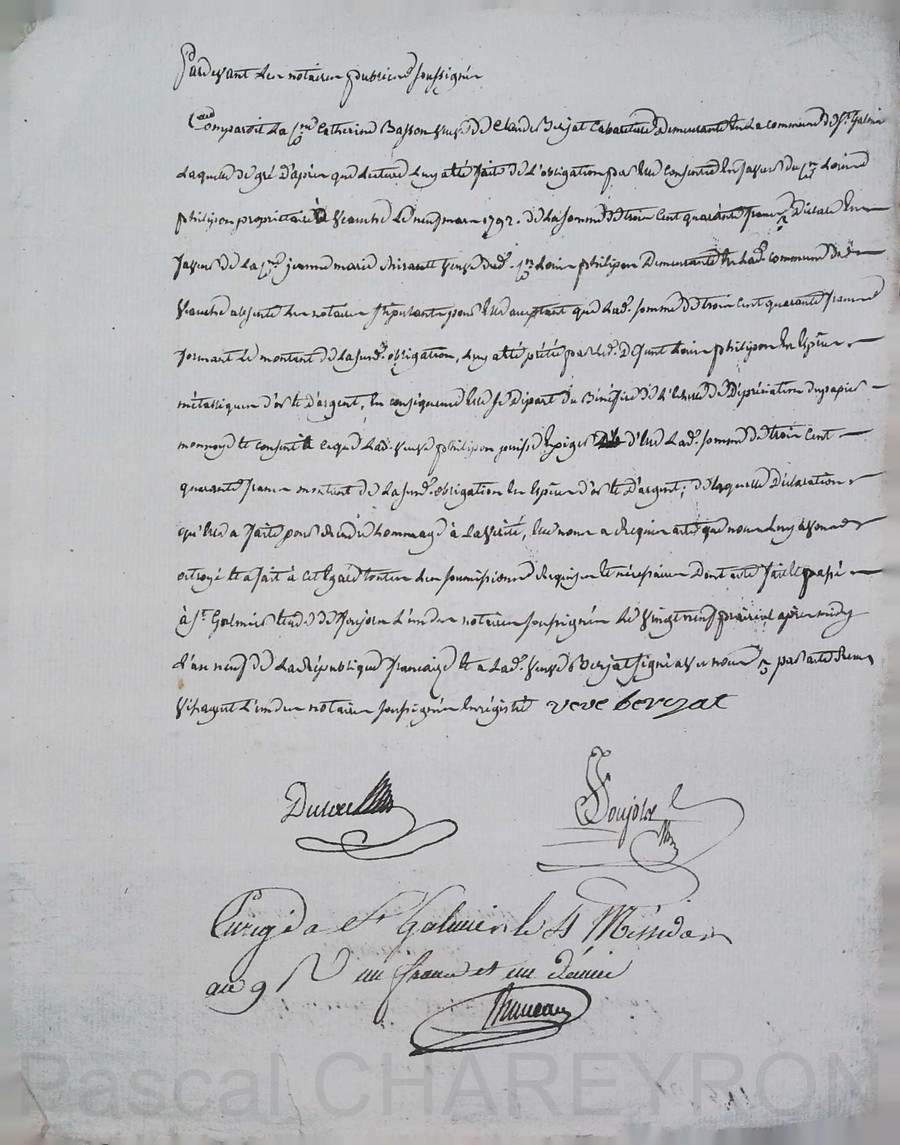 Pardevant les notaires publics soussignés
Comparoit La c.ne Catherine Basson veuve de Claude Berjat Cabaretiere Demeurante en La commune de St Galmier
Laquelle de gré D'après que lecture Luy a été faite de L'obligation par elle consentie en faveur du c.n Louis
philipon proprietaire à Veauche Le neuf mars 1792. de La somme de trois cent quarante francs, Déclare en
faveur de La c.ne jeanne marie veuve dud. c.n Louis philipon Demeurante en Lad. commune de
Veauche absente Les notaires stipulants pour elle acceptant que Lad. somme de trois cent quarante francs
formant Le montant de La susd. obligation, Luy a été prêtée par led. Defunt Louis philipon en Espèces
métalliques d'or et D'argent, En conséquence elle se Départ du Bénéfice de L'échelle de Dépréciation du papier
monnoye et consent à ce que Lad. veuve philipon puisse Exiger d'elle Lad. somme de trois cent
quarante francs montant de La susd. obligation en Espèces d'or et D'argent; de laquelle Déclaration
qu'elle a faite pour rendre hommage à La vérité, elle nous a requis acte que nous Luy avons
octroyé et a fait à cet Egard toutes Les soumissions requises et nécessaires Dont acte fait et passé
à St Galmier Etude de Soujolse L'un des notaires soussignés Le vingt neuf prairial après midy
L'an neuf de La République française et a Lad. veuve Berjat signé avec nous, par acte
L'un des notaires soussignés Enrégistré veve berjat
Soujolse
Enrégé a St Galmier le 4 Messidor
an 9 R un franc et un décime
Pascal CHAREYRON